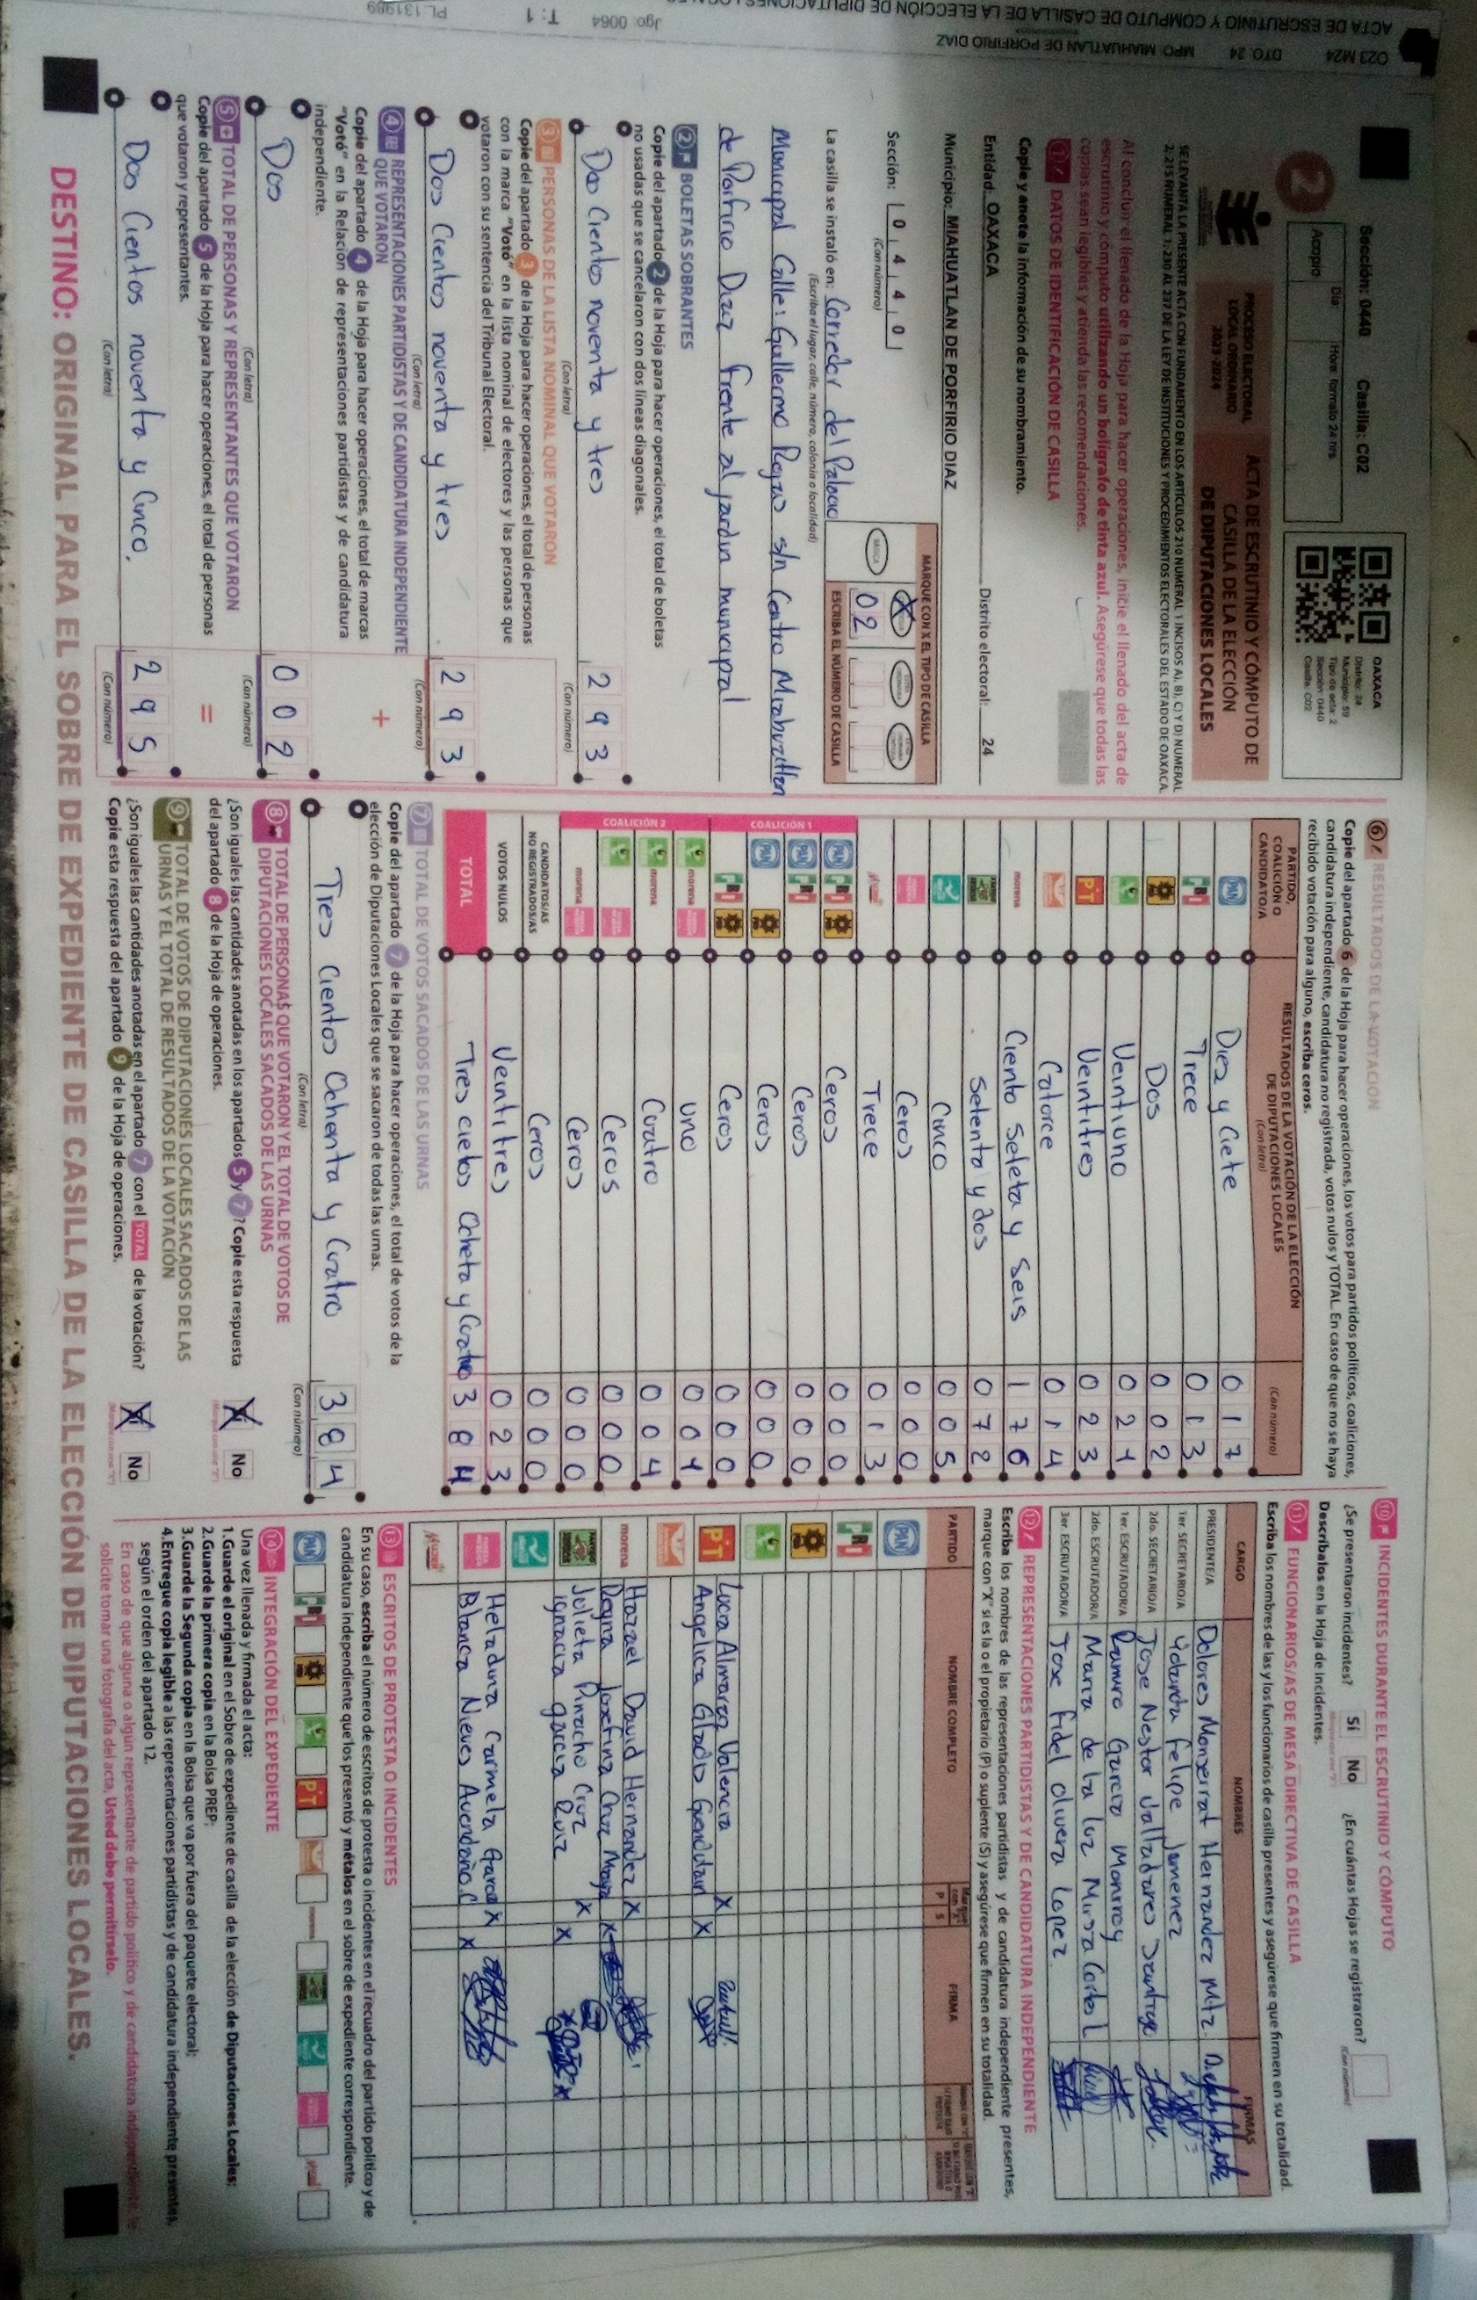 Sección: 0440 Casilla: C02
2
Día
Hora: formato 24 hrs
Acopio
OAXACA
Distrito: 24
Municipio: 59
Tipo de acta: 2
Sección: 0440
Casilla: C02
PROCESO ELECTORAL
LOCAL ORDINARIO
2023-2024
ACTA DE ESCRUTINIO Y CÓMPUTO DE
CASILLA DE LA ELECCIÓN
DE DIPUTACIONES LOCALES
SE LEVANTA LA PRESENTE ACTA CON FUNDAMENTO EN LOS ARTÍCULOS 210 NUMERAL 1 INCISOS A), B), C) Y D) NUMERAL
2; 215 NUMERAL 1; 230 AL 237 DE LA LEY DE INSTITUCIONES Y PROCEDIMIENTOS ELECTORALES DEL ESTADO DE OAXACA.
Al concluir el llenado de la Hoja para hacer operaciones, inicie el llenado del acta de
escrutinio y cómputo utilizando un bolígrafo de tinta azul. Asegúrese que todas las
copias sean legibles y atienda las recomendaciones.
1 DATOS DE IDENTIFICACIÓN DE CASILLA
Copie y anote la información de su nombramiento.
Entidad: OAXACA Distrito electoral: 24
Municipio: MIAHUATLAN DE PORFIRIO DIAZ
Sección: 0 4 4 0
(Con número)
MARQUE CON X EL TIPO DE CASILLA
X
ESCRIBA EL NÚMERO DE CASILLA
02
La casilla se instaló en: Corredor del Palacio
(Escriba el lugar, calle, número, colonia o localidad)
Municipal Calle: Guillermo Rojas s/n Centro Miahuatlan
de Porfirio Diaz frente al jardin municipal
2 BOLETAS SOBRANTES
Copie del apartado 2 de la Hoja para hacer operaciones, el total de boletas
no usadas que se cancelaron con dos líneas diagonales.
Dos Cientos noventa y tres 293
(Con letra) (Con número)
3 PERSONAS DE LA LISTA NOMINAL QUE VOTARON
Copie del apartado 3 de la Hoja para hacer operaciones, el total de personas
con la marca "Votó" en la lista nominal de electores y las personas que
votaron con su sentencia del Tribunal Electoral.
Dos Cientos noventa y tres 293
(Con letra) (Con número)
4 REPRESENTACIONES PARTIDISTAS Y DE CANDIDATURA INDEPENDIENTE
QUE VOTARON
+
Copie del apartado 4 de la Hoja para hacer operaciones, el total de marcas
"Votó" en la Relación de representaciones partidistas y de candidatura
independiente.
Dos 002
(Con letra) (Con número)
5 TOTAL DE PERSONAS Y REPRESENTANTES QUE VOTARON
=
Copie del apartado 5 de la Hoja para hacer operaciones, el total de personas
que votaron y representantes.
Dos Cientos noventa y Cinco. 295
(Con letra) (Con número)
6 RESULTADOS DE LA VOTACIÓN
Copie del apartado 6 de la Hoja para hacer operaciones, los votos para partidos políticos, coaliciones,
candidatura independiente, candidatura no registrada, votos nulos y TOTAL. En caso de que no se haya
recibido votación para alguno, escriba ceros.
PARTIDO,
COALICIÓN O
CANDIDATO/A
RESULTADOS DE LA VOTACIÓN DE LA ELECCIÓN
DE DIPUTACIONES LOCALES
(Con letra)
(Con número)
PAN Diez y Ciete 017
PRI Trece 013
Dos 002
Veintiuno 021
PT Veintitres 023
Catorce 014
morena Ciento Seteta y Seis 176
Setenta y dos 072
Cinco 005
Ceros 000
Trece 013
COALICIÓN 1
PAN PRI Ceros 000
PAN PRI Ceros 000
PAN Ceros 000
PRI Ceros 000
COALICIÓN 2
morena uno 001
morena Cuatro 004
Ceros 000
morena Ceros 000
CANDIDATOS/AS
NO REGISTRADOS/AS Ceros 000
VOTOS NULOS Veintitres 023
TOTAL Tres cietos Ocheta y Cuatro 384
7 TOTAL DE VOTOS SACADOS DE LAS URNAS
Copie del apartado 7 de la Hoja para hacer operaciones, el total de votos de la
elección de Diputaciones Locales que se sacaron de todas las urnas.
Tres Cientos Ochenta y Cuatro 384
(Con letra) (Con número)
8 TOTAL DE PERSONAS QUE VOTARON Y EL TOTAL DE VOTOS DE
DIPUTACIONES LOCALES SACADOS DE LAS URNAS
¿Son iguales las cantidades anotadas en los apartados 5 y 7? Copie esta respuesta
del apartado 8 de la Hoja de operaciones.
X No
9 TOTAL DE VOTOS DE DIPUTACIONES LOCALES SACADOS DE LAS
URNAS Y EL TOTAL DE RESULTADOS DE LA VOTACIÓN
¿Son iguales las cantidades anotadas en el apartado 7 con el TOTAL de la votación?
Copie esta respuesta del apartado 9 de la Hoja de operaciones.
X No
10 INCIDENTES DURANTE EL ESCRUTINIO Y CÓMPUTO
¿Se presentaron incidentes? Sí No ¿En cuántas Hojas se registraron?
(Con número)
Descríbalos en la Hoja de Incidentes.
11 FUNCIONARIOS/AS DE MESA DIRECTIVA DE CASILLA
Escriba los nombres de las y los funcionarios de casilla presentes y asegúrese que firmen en su totalidad.
CARGO NOMBRES FIRMAS
PRESIDENTE/A Dolores Monserrat Hernandez Mtz.
1er. SECRETARIO/A Yolanda Felipe Jimenez
2do. SECRETARIO/A Jose Nestor Valladares Santiago
1er. ESCRUTADOR/A Ramiro Garcia Monroy
2do. ESCRUTADOR/A Maria de la luz
3er. ESCRUTADOR/A Jose Fidel Olivera Lopez
12 REPRESENTACIONES PARTIDISTAS Y DE CANDIDATURA INDEPENDIENTE
Escriba los nombres de las representaciones partidistas y de candidatura independiente presentes,
marque con "X" si es la o el propietario (P) o suplente (S) y asegúrese que firmen en su totalidad.
PARTIDO NOMBRE COMPLETO P S FIRMA
PAN
PRI
PT Lucia Almaraz Valencia X
Angelica Gladis X
morena Hazael David Hernandez X
Cruz X
Julieta Pinacho Cruz X
ignacia garcia Ruiz X
Heladina Carmela Garcia X
Blanca Nieves Avendaño C X
13 ESCRITOS DE PROTESTA O INCIDENTES
En su caso, escriba el número de escritos de protesta o incidentes en el recuadro del partido político y de
candidatura independiente que los presentó y métalos en el sobre de expediente correspondiente.
PAN PRI PT morena
14 INTEGRACIÓN DEL EXPEDIENTE
Una vez llenada y firmada el acta:
1.Guarde el original en el Sobre de expediente de casilla de la elección de Diputaciones Locales;
2.Guarde la primera copia en la Bolsa PREP;
3.Guarde la Segunda copia en la Bolsa que va por fuera del paquete electoral;
4.Entregue copia legible a las representaciones partidistas y de candidatura independiente presentes,
según el orden del apartado 12.
En caso de que alguna o algún representante de partido político y de candidatura independiente le
solicite tomar una fotografía del acta, Usted debe permitírselo.
DESTINO: ORIGINAL PARA EL SOBRE DE EXPEDIENTE DE CASILLA DE LA ELECCIÓN DE DIPUTACIONES LOCALES.
O23 M24 DTO. 24 MPO. MIAHUATLAN DE PORFIRIO DIAZ
ACTA DE ESCRUTINIO Y COMPUTO DE CASILLA DE LA ELECCIÓN DE DIPUTACIONES
Jgo: 0064 T: 1 PL 131989